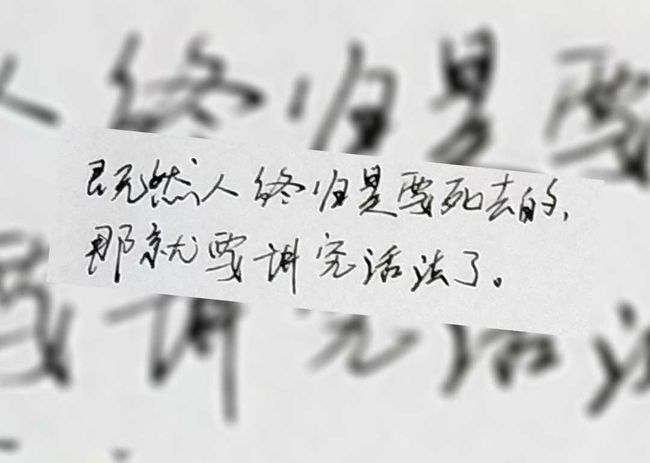 既然人终归是要死去的，
那就要讲究活法了。